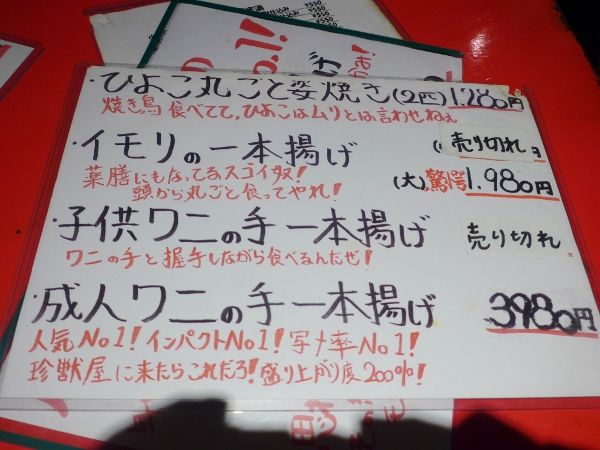 ・ひよこ丸ごと姿焼き(2匹)1,280円
焼き鳥食べてて、ひよこはムリとは言わせねぇ
・イモリの一本揚げ 売り切れ
薬膳にもなってるスゴイ奴!
頭から丸ごと食ってやれ!
(大)驚愕1,980円
・子供ワニの手一本揚げ 売り切れ
ワニの手と握手しながら食べるんだぜ!
・成人ワニの手一本揚げ 3980円
人気No1!インパクトNo1!写メ率No1!
珍獣屋に来たらこれだろ!盛り上がり度200%!
¥550
¥550